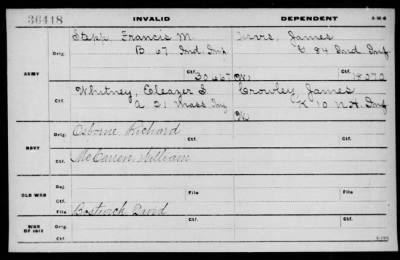 36418 INVALID DEPENDENT
Stepp Francis M. James
Orig. B 67 Ind. Inf 84 Ind Inf
ARMY Ctf. 30667 Ctf. 18072
Whitney, Eleazer S Crowley, James
Ctf. 21 Mass Inf K 10 N.H. Inf
Orig. Osborne Richard Ctf.
NAVY
Ctf. McCarren, William
Orig.
OLD WAR Ctf. File Ctf. File
File Bostwick David
WAR OF 1812 Orig. Ctf.
Ctf.